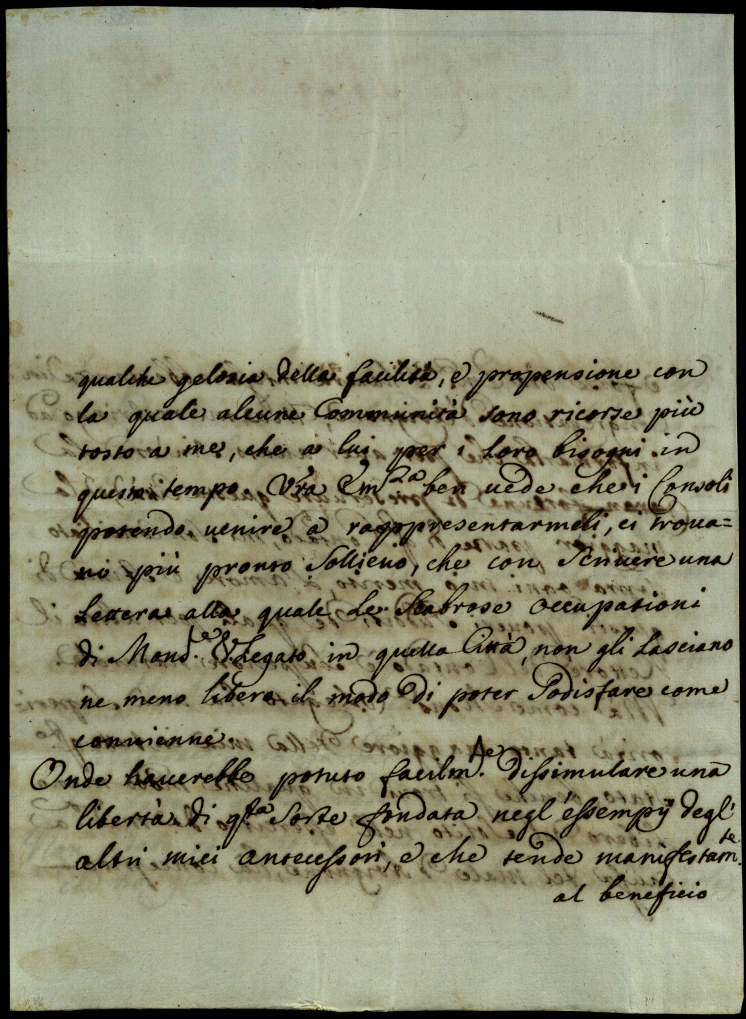 qualche gelosia della facilità, e propensione con
la quale alcune Communità sono ricorse più
tosto a me, che a lui per i loro bisogni in
questo tempo. Vra Em.za ben vede che i Consoli
potendo venire a rappresentarmeli, ci troua=
no più pronto Sollieuo, che con Scriuere una
Lettera alla quale Le Scabrose occupationi
di Mons.re VLegato in quella Città, non gli Lasciano
ne meno libero il modo di poter Sodisfare come
conuienne.
Onde hauerebbe potuto facilm.te dissimulare una
libertà di q.sta Sorte fondata negl'essempij degl'
altri miei antecessori, e che tende manifestam.te
al beneficio